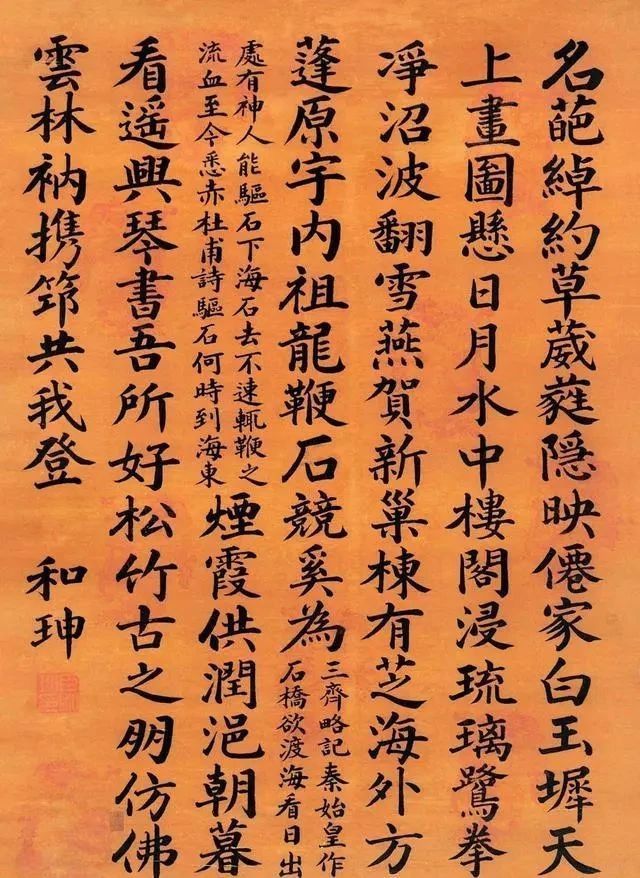 名葩綽約草葳蕤隐映僊家白玉墀天
上畫圖懸日月水中樓閣浸琉璃鷺拳
淨沼波翻雪燕賀新巢棟有芝海外方
蓬原宇内祖龍鞭石競奚為
三齊略記秦始皇作
石橋欲渡海看日出
處有神人能驅石下海石去不速輒鞭之
流血至今悉赤杜甫詩驅石何時到海東
煙霞供潤浥朝暮
看遥興琴書吾所好松竹古之朋仿佛
雲林衲携筇共我登
和珅